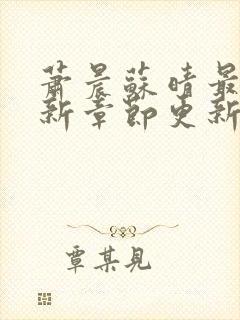 萧晨蘇晴最
新章節更新
覃某見